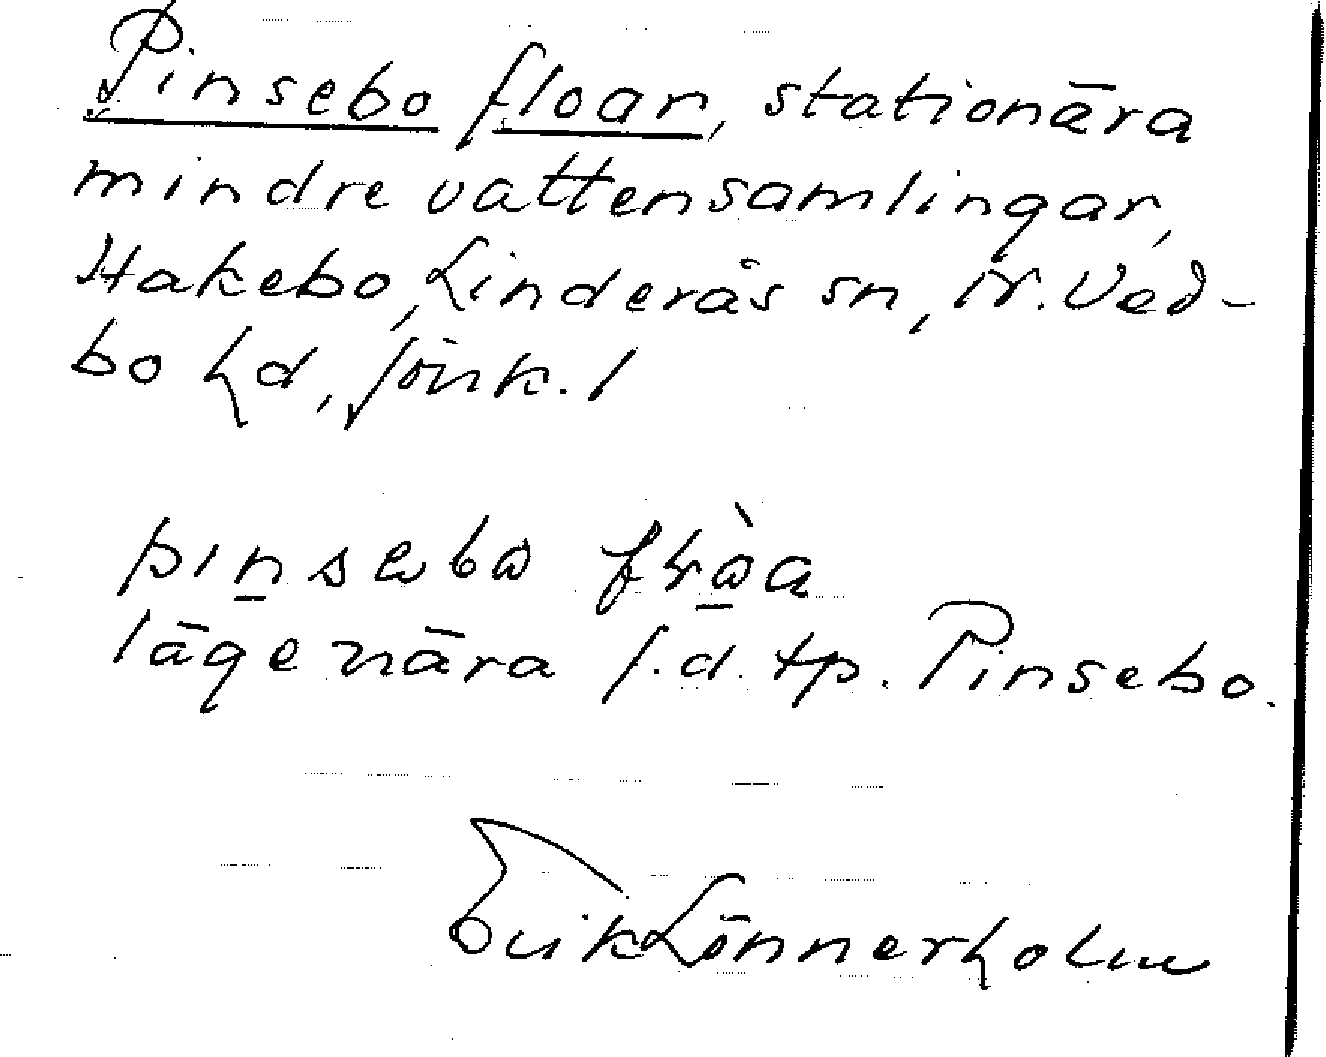 Pinsebo floar, stationära
mindre vattensamlingar,
Hakebo, Linderås sn, N. Ved-
bo hd, Jönk. l
lägenära f.d. tp. Pinsebo.
Erik Lönnerholm